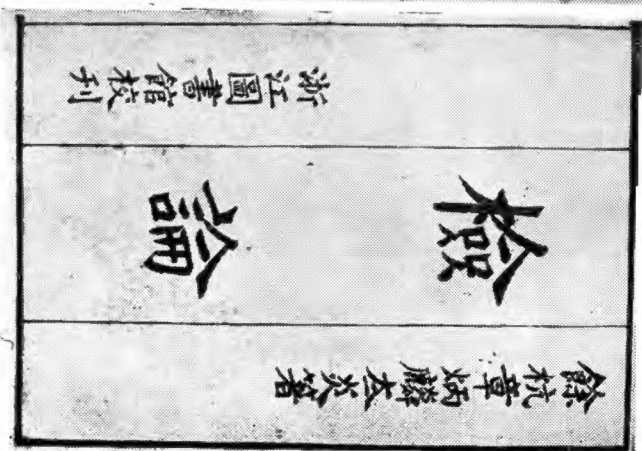 餘杭章炳麟太炎箸
檢論
浙江圖書館校刊